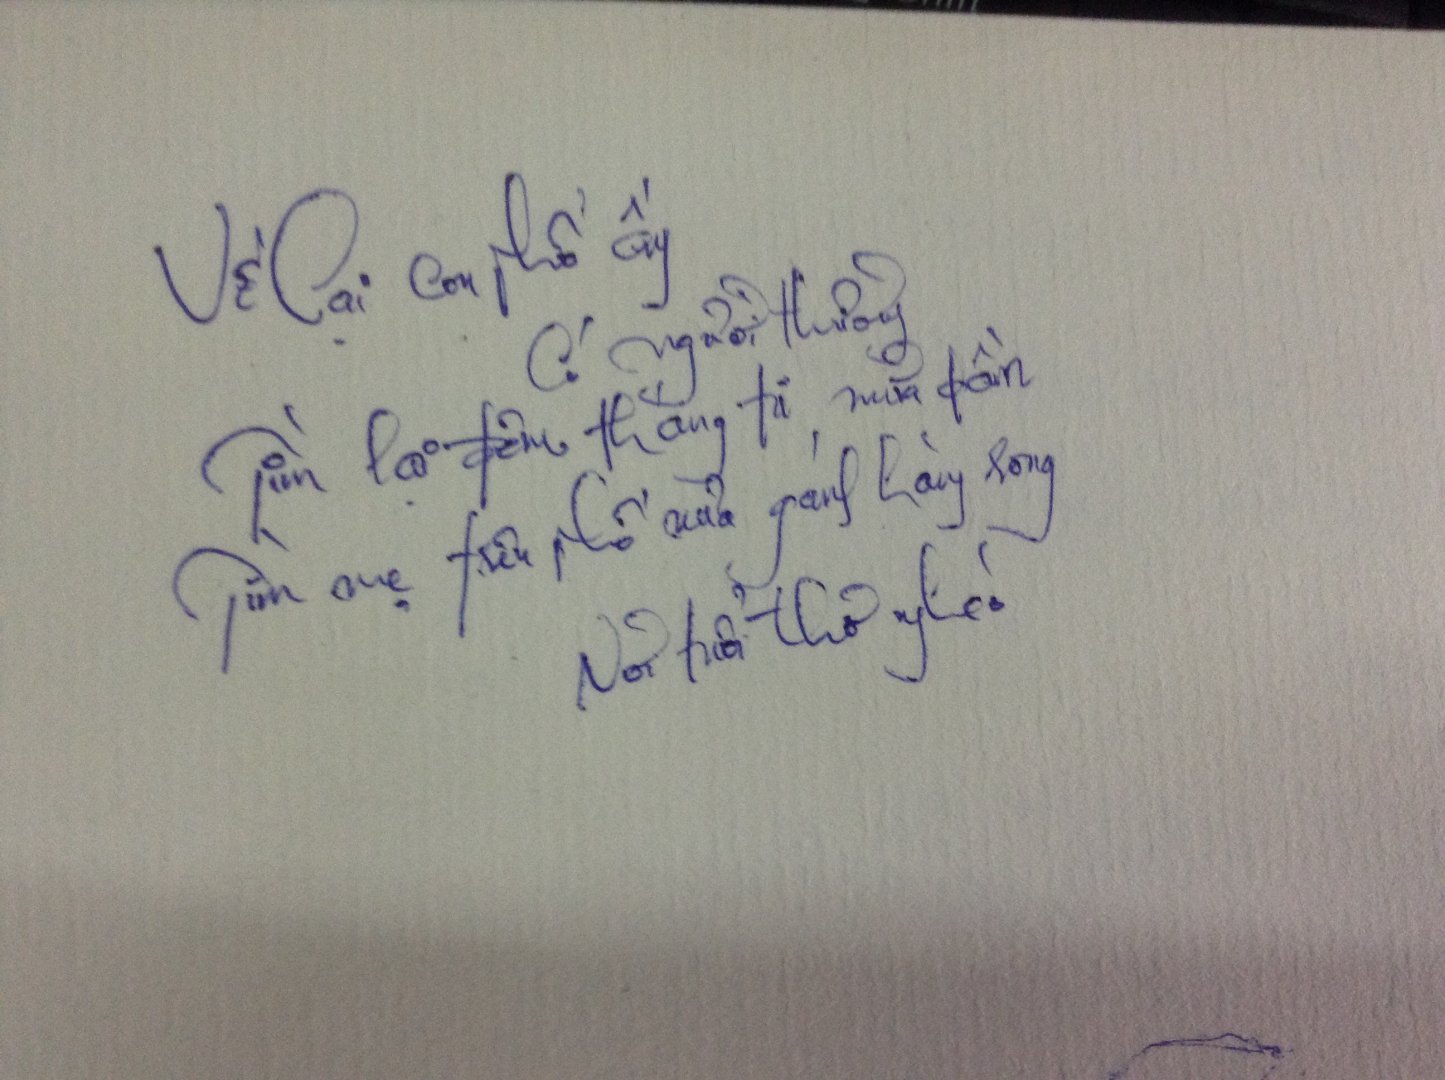 Về lại con phố ấy
Có người thương
Tìm lại đêm tháng tư mưa tần
Tìm mẹ trên phố mưa gánh hàng rong
Nơi tuổi thơ nghèo